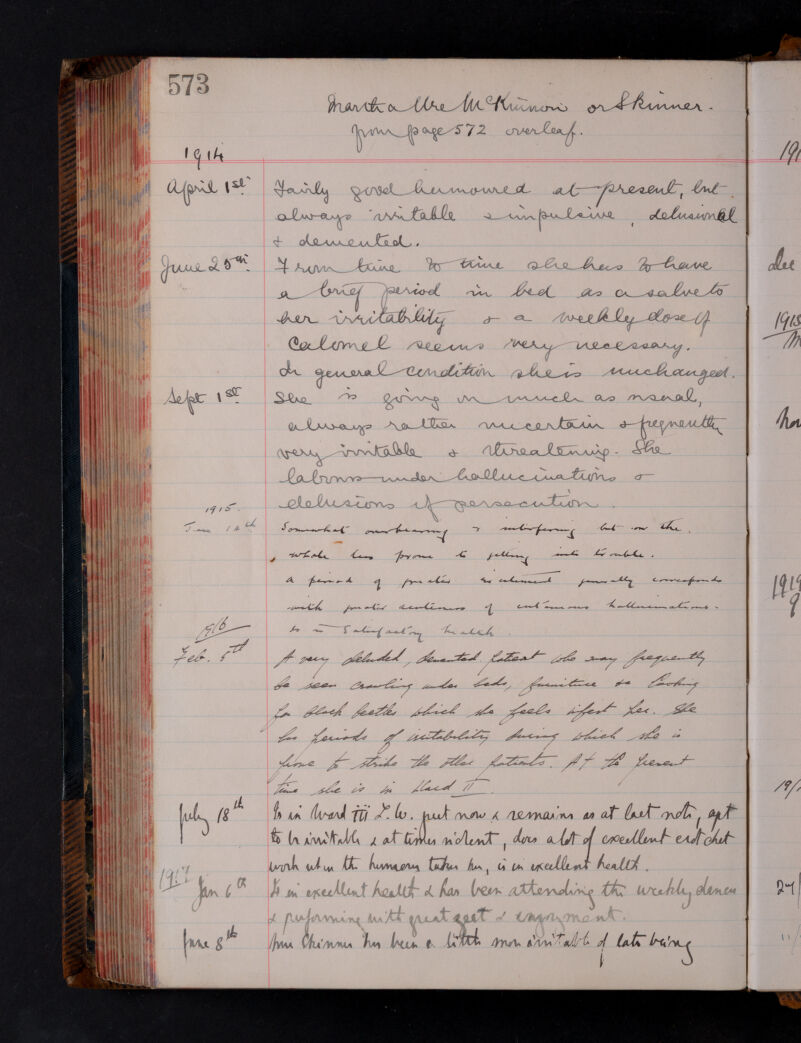 573
Martha Ure McKinnon or Skinner.
from page 572 overleaf.
1914
April 1st. Fairly good humoured at present, but
always irritable & impulsive, delusional
& demented.
June 25th. From time to time she has to have
a brief period in bed as a salve to
her irritability & a weekly dose of
Calomel seems very necessary.
In general condition she is unchanged.
Sept 1st She is going on much as usual,
always rather uncertain & frequently
very irritable & threatening. She
labours under hallucinations &
delusions of persecution.
1915.
Jan 12th Somewhat overbearing & interfering but on the
whole less prone to getting into trouble.
A period of greater excitement generally corresponds
with greater acuteness of cutaneous hallucinations.
Is in Satisfactory health.
1916
Feb. 5th A very deluded, demented patient who may frequently
be seen crawling under beds, furniture &c looking
for black beetles which she feels infest her. She
has periods of irritability during which she is
prone to strike the other patients. At the present
time she is in Ward II.
July 18th Is in Ward III L.W. just now & remains as at last note, apt
to be irritable & at times violent, does a lot of excellent crotchet
work when the humour takes her, is in excellent health.
1917
Jan 6th Is in excellent health & has been attending the weekly dances
& performing with great zest & enjoyment.
June 8th Mrs Skinner has been a little more irritable of late being
191
Dec
1915
M
Nov
1919
9
19/
27/
11/